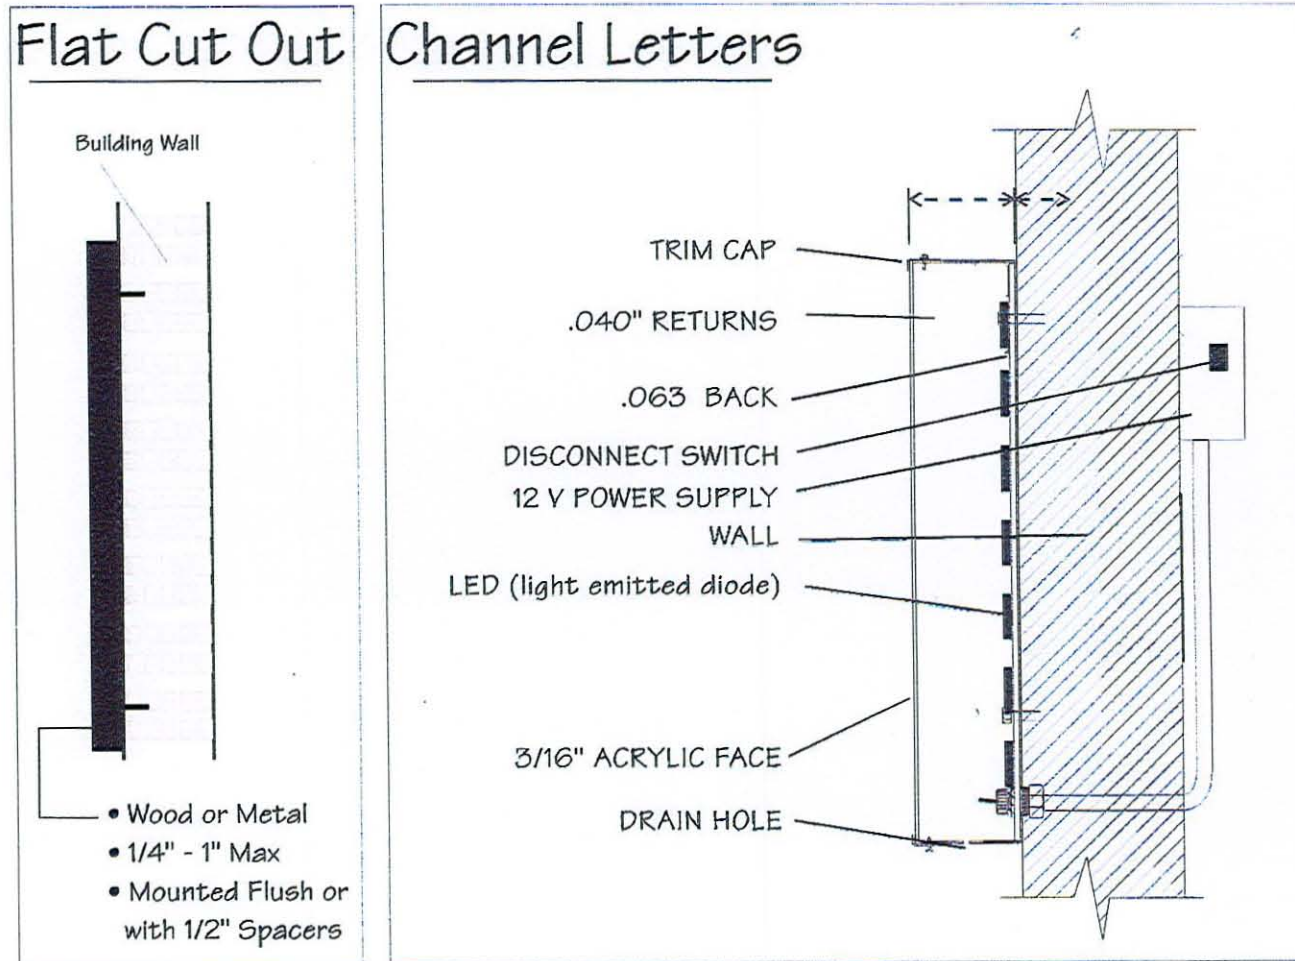 Flat Cut Out
Building Wall
• Wood or Metal
• 1/4" - 1" Max
• Mounted Flush or
with 1/2" Spacers
Channel Letters
TRIM CAP
.040" RETURNS
.063 BACK
DISCONNECT SWITCH
12 V POWER SUPPLY
WALL
LED (light emitted diode)
3/16" ACRYLIC FACE
DRAIN HOLE